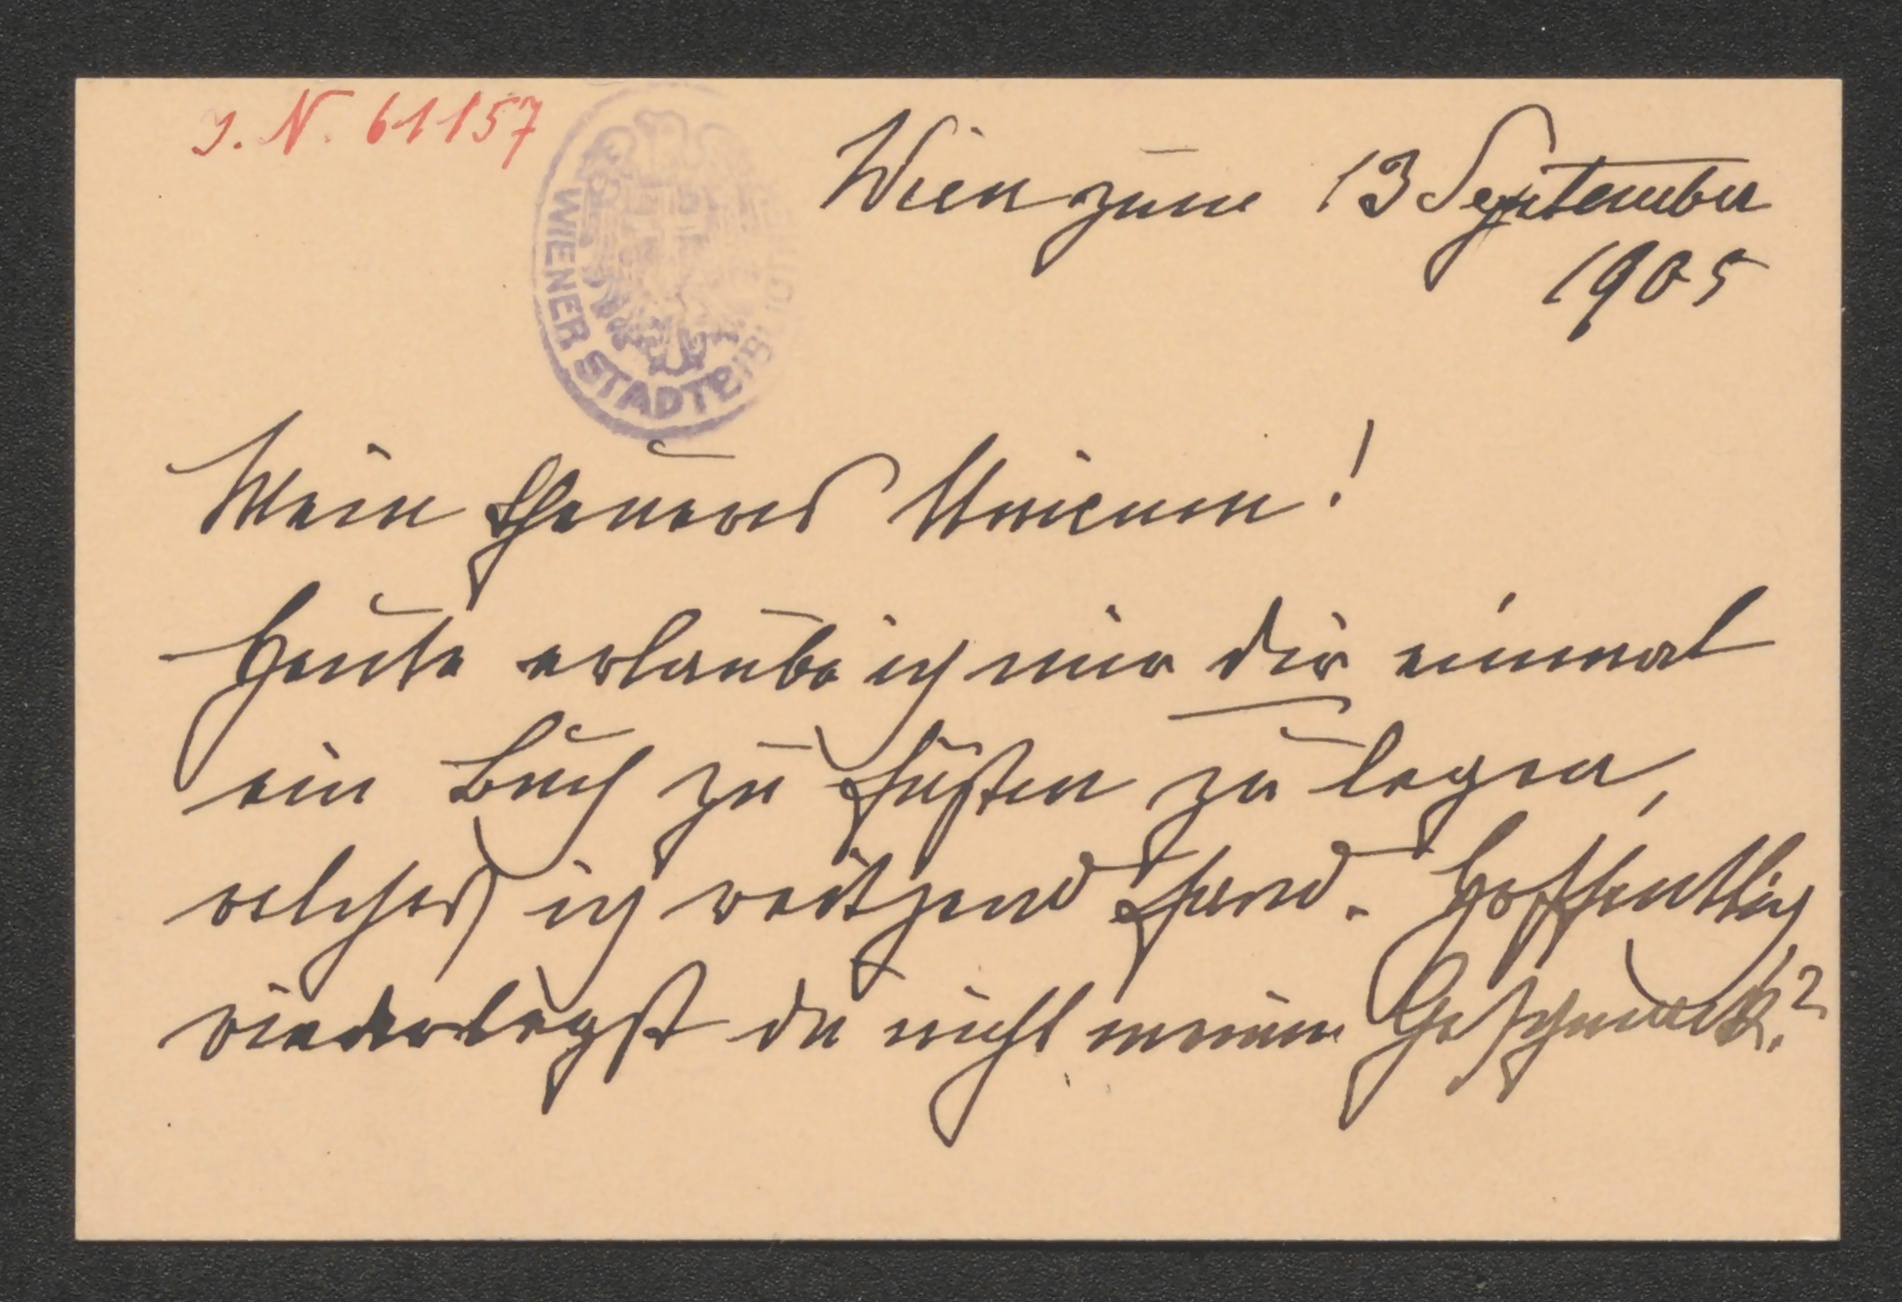 I. N. 61157
WIENER STADTBIBLIOTHEK
Wien zum 13 September
1905
Mein theueres Unicum!
Heute erlaube ich mir dir einmal
ein Buch zu Füßen zu legen,
welches ich reitzend fand. Hoffentlich
wiederlegst du nicht meinen Geschmack?